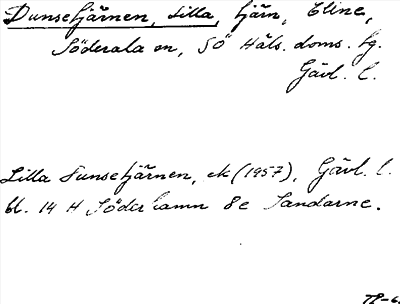 Dunsetjärnen, Lilla, tjärn, Eline,
Söderala sn, SÖ Häls. doms. fg.
Gävl. l.
Lilla Dunsetjärnen, ek (1957), Gävl. l.
bl. 14 H Söderhamn 8e Sandarne.